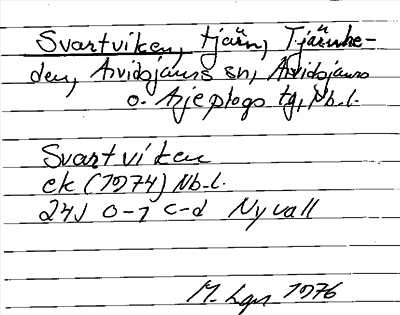 Svartviken, tjärn, Tjärnhe-
den, Arvidsjaurs sn, Arvidsjaurs
o. Arjeplogs tg, Nb. l.
Svartviken
ek (1974) Nb. l.
24J 0-1 c-d Nyvall
M. Lgn 1976